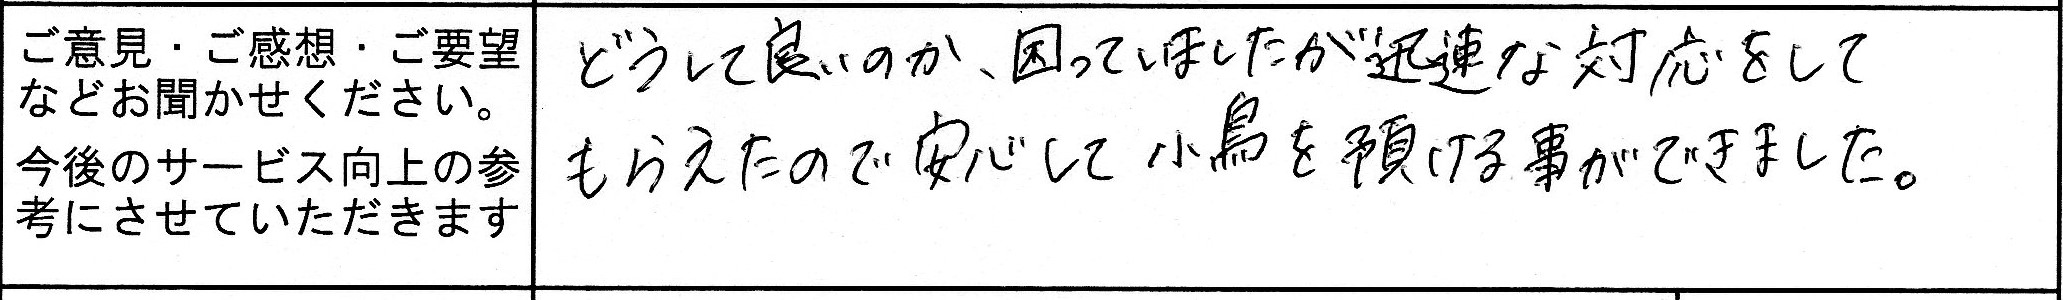 ご意見・ご感想・ご要望
などお聞かせください。
今後のサービス向上の参
考にさせていただきます
どうして良いのか、困っていましたが迅速な対応をして
もらえたので安心して小鳥を預ける事ができました。